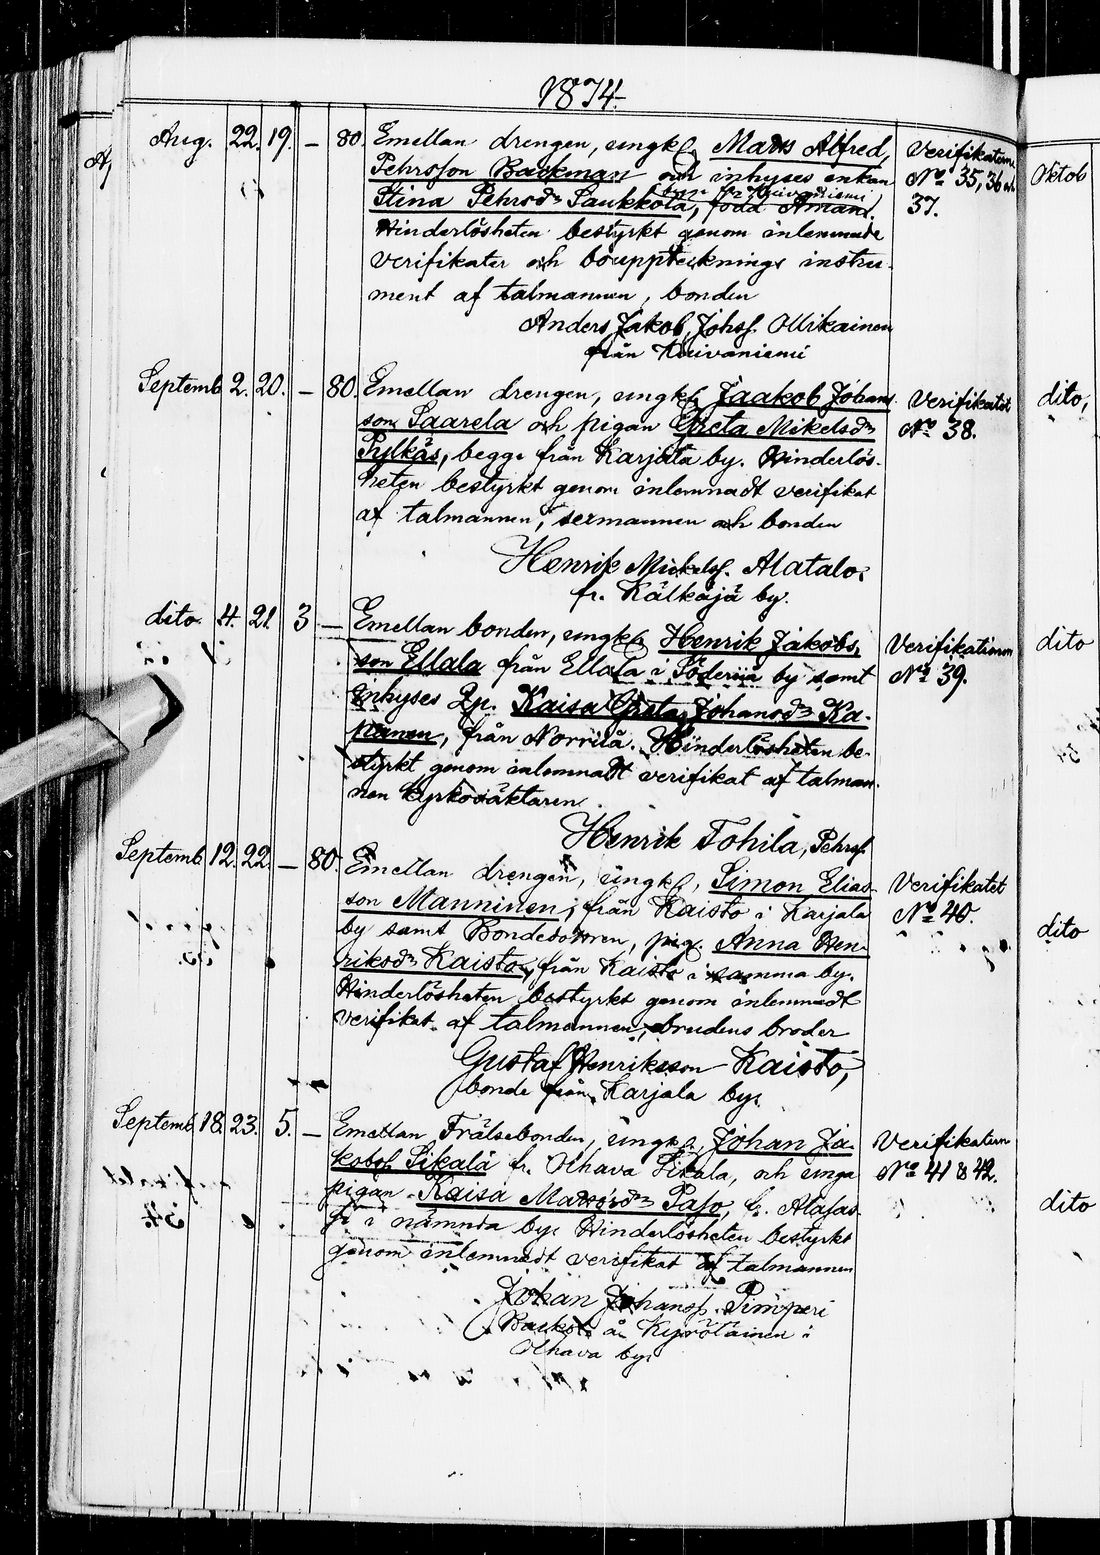 1874.
Aug. 22. 19. – 80. Emellan drengen, ungk. Matts Alfred
Pehrsson Backman och inhyses enkan
Stina Pehrsdr Saukkola, född Aman.
Hinderlösheten bestyrkt genom inlemnade
verifikater och bouppteknings instru-
ment af talmannen, bonden
Anders Jakob Johsf. Ollikainen
från Kuivaniemi
Verifikaterna
No 35, 36 och
37.
Septemb. 2. 20. – 80. Emellan drengen, ungk. Jaakob Johans
son Saarela och pigan Greta Mikelsdr
Pylkäs, begge från Karjala by. Hinderlös-
heten bestyrkt genom inlemnadt verifikat
af talmannen, sexmannen och bonden
Henrik Mickelsf. Alatalo,
fr. Kälkäjä by.
Verifikatet
No 38.
dito. 4. 21. 3 – Emellan bonden, ungk. Henrik Jakobs-
son Ellala från Ellala i by samt
inhyses Kaisa Greta Johansdr Ka-
, från Norriså. Hinderlösheten be-
styrkt genom inlemnadt verifikat af talman-
nen kyrkoväktaren
Henrik Tohila, Pehrsf.
No 39.
Septemb. 12. 22. – 80. Emellan drengen, ungk. Simon Elias-
son Manninen, från Kaisto i Karjala
by samt Bondedottren, pig. Anna Hen-
riksdr Kaisto, från Kaisto i samma by.
Hinderlösheten bestyrkt genom inlemnadt
verifikat af talmannen, brudens broder
Gustaf Henriksson Kaisto,
bonde från Karjala by.
Verifikatet
No 40.
Septemb. 18. 23. 5. – Emellan Frälsebonden, ungk. Johan Ja-
kobsf. Sikala fr. Olhava Sikala, och unga
pigan Kaisa
i nämnda by. Hinderlösheten bestyrkt
genom inlemnadt verifikat af talmannen
Johan Johansf. Pimperi
å i
Olhava by.
No 41 & 42.
Oktob
dito,
dito
dito
dito